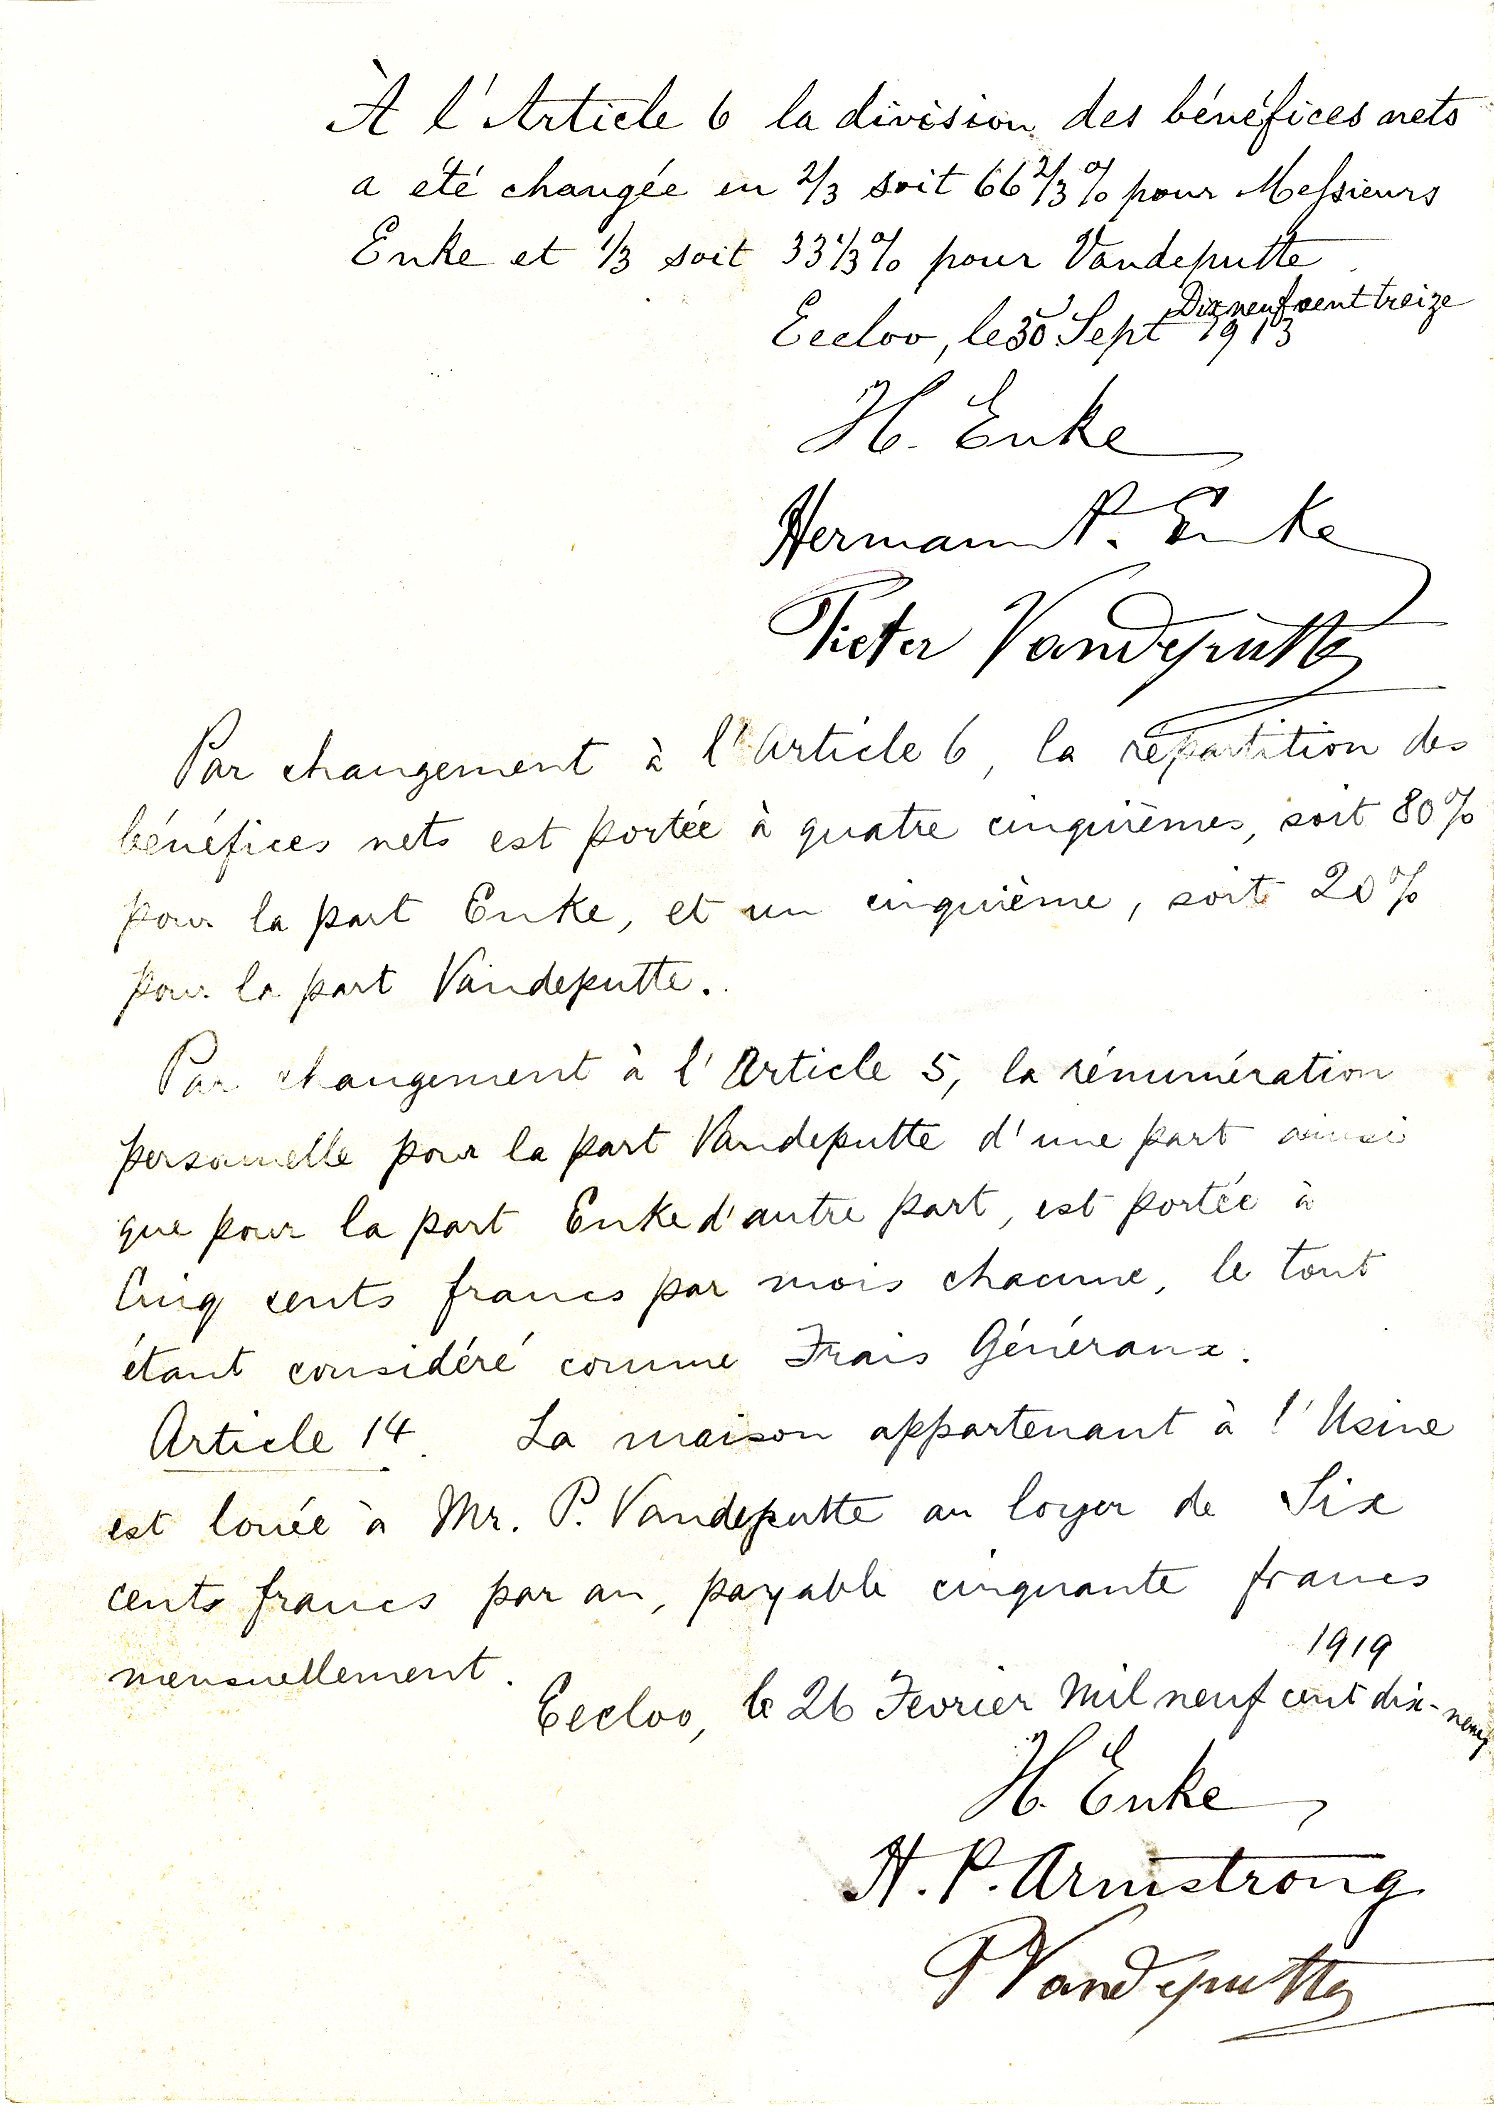 À l'Article 6 la division des bénéfices nets
a été changée en 2/3 soit 66 2/3 % pour Messieurs
Enke et 1/3 soit 33 1/3 % pour Vandeputte
Dix neuf cent treize
Eecloo, le 30 Sept 1913
H. Enke
Hermann P. Enke
Pieter Vandeputte
Par changement à l'Article 6, la repartition des
bénéfices nets est portée à quatre cinquièmes, soit 80 %
pour la part Enke, et un cinquième, soit 20 %
pour la part Vandeputte.
Par changement à l'Article 5, la rénumération
personnelle pour la part Vandeputte d'une part ainsi
que pour la part Enke d'autre part, est portée à
Cinq cents francs par mois chacune, le tout
étant considéré comme Frais Généraux.
Article 14. La maison appartenant à l'Usine
est louée à Mr. P. Vandeputte au loyer de Six
cents francs par an, payable cinquante francs
mensuellement.
1919
Eecloo, le 26 Fevrier Mil neuf cent dix-neuf
H. Enke
H. P. Armstrong
P Vandeputte